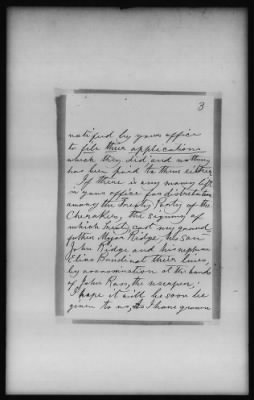 3
notified by your office
to file their applications
which they did and nothing
has been paid to them either.
If there is any money left
in your office for distribution
among the Treaty Party of the
Cherokees, the signing of
which Treaty cost my grand-
father Major Ridge, his son
John Ridge and his nephew
Elias Boudinot their lives,
by assassination at the hands
of John Ross, the usurper,
I hope it will be soon be
given to us, as I have grown